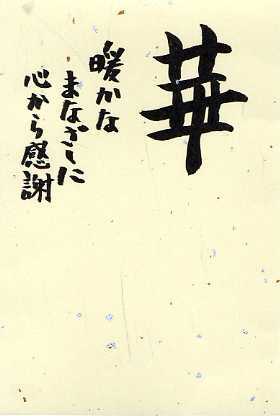 華
暖かな
まなざしに
心から感謝